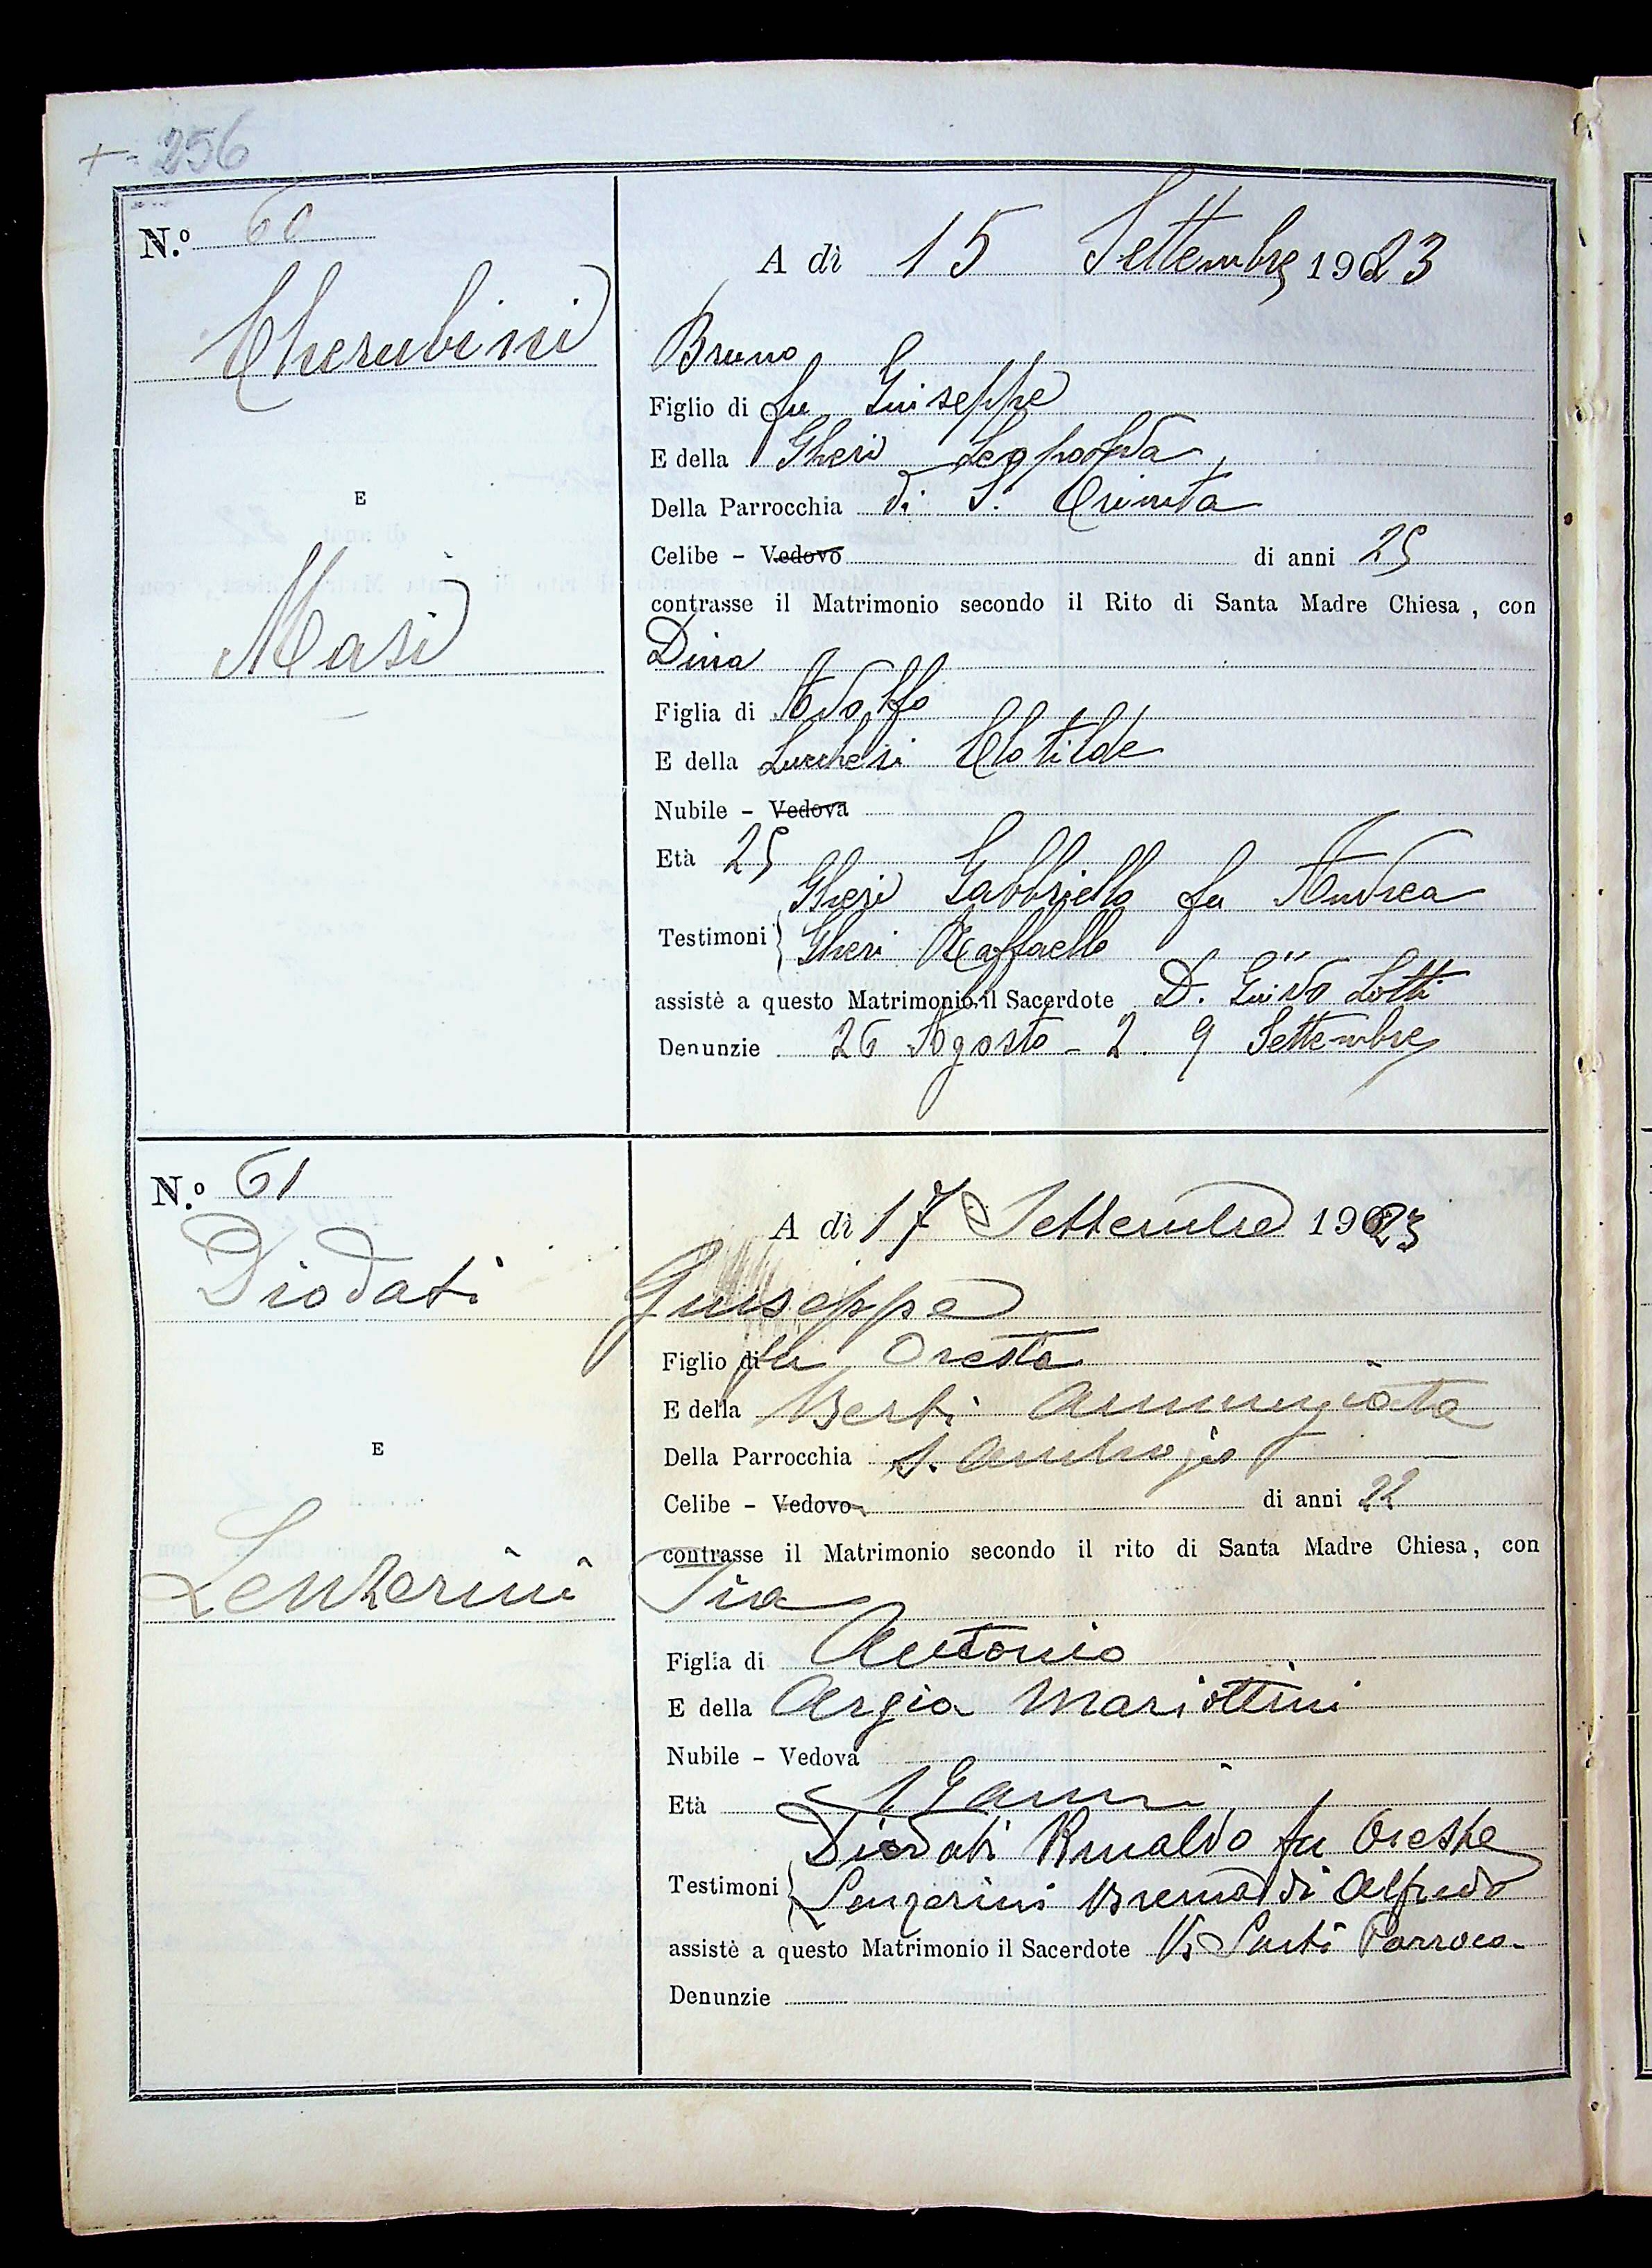 + 256
N.º 60
Cherubini
E
Masi
A dì 15 Settembre 1923
Bruno
Figlio di fu Giuseppe
E della Gheri Leopolda
Della Parrocchia di S. Trinita
Celibe - Vedovo di anni 25
contrasse il Matrimonio secondo il Rito di Santa Madre Chiesa, con
Dina
Figlia di Adolfo
E della Lucchesi Clotilde
Nubile - Vedova
Età 25
Gheri Gabbriello fu Andrea
Testimoni
Gheri Raffaello
assistè a questo Matrimonio il Sacerdote D. Guido Lotti
Denunzie 26 Agosto - 2. 9 Settembre
N.º 61
Diodati
E
Lenzerini
A dì 17 Settembre 1923
Giuseppe
Figlio di fu Oreste
E della Berti Annunziata
Della Parrocchia S. Ambrogio
Celibe - Vedovo di anni 22
contrasse il Matrimonio secondo il rito di Santa Madre Chiesa, con
Figlia di Antonio
E della Argia Mariottini
Nubile - Vedova
Età 19 anni
Diodati Rinaldo fu Oreste
Testimoni
Lenzerini di Alfredo
assistè a questo Matrimonio il Sacerdote Parroco
Denunzie